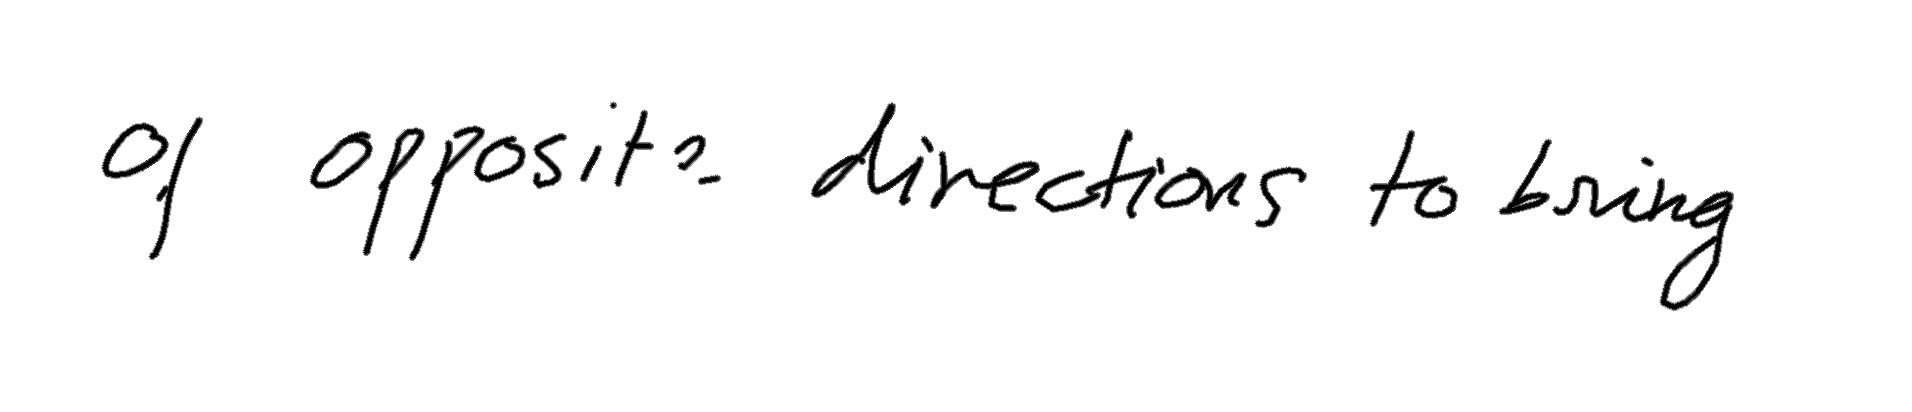 of opposite directions to bring